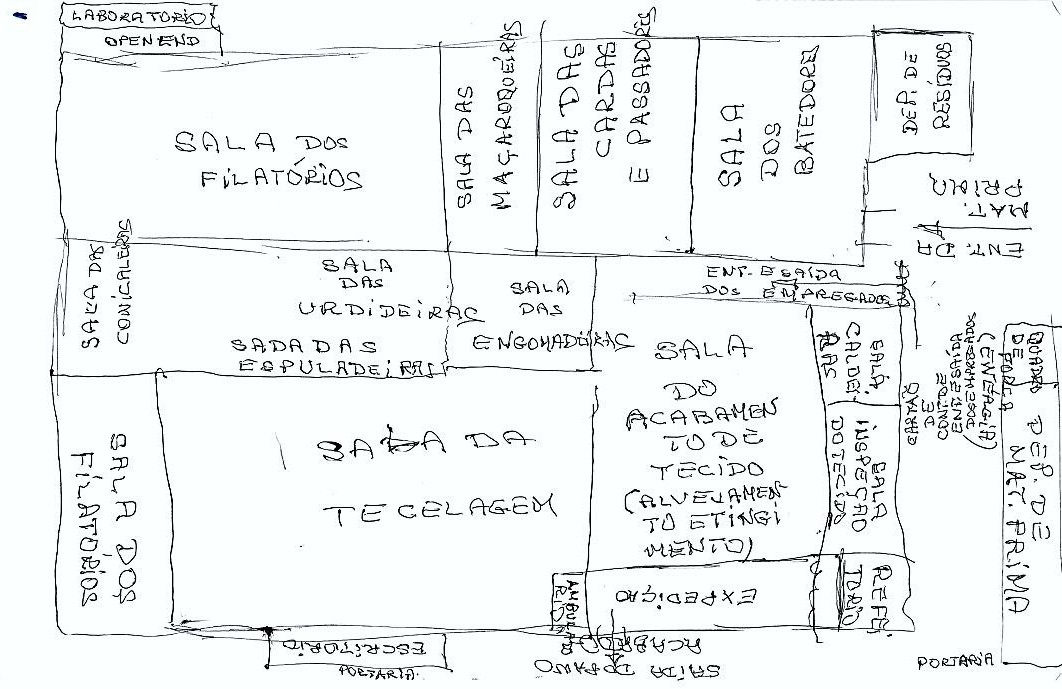 LABORATORIO
OPEN END
SALA DOS
FILATÓRIOS
SALA DAS
MAÇAROQUEIRAS
SALA DAS
CARDAS
E PASSADORES
SALA
DOS
BATEDORES
DEP. DE
RESÍDUOS
ENT. DA
MAT.
PRIMA
SALA DAS
CONICALEIRAS
SALA
DAS
URDIDEIRAS
SADA DAS
ESPULADEIRAS
SALA
DAS
ENGOMADEIRAS
ENT. E SAÍDA
DOS EMPREGADOS
SALA
DO
ACABAMEN
TO DE
TECIDO
(ALVEJAMEN
TO E TINGI
MENTO)
SALA
CALDEI-
RAS
SALA
INSPEÇÃO
DO TECIDO
CARTÃO
DE
CONT. DE
ENT. E SAÍDA
DOS EMPREGADOS
QUADRO
DE FORÇA
(ENERGIA)
DEP. DE
MAT. PRIMA
SALA DOS
FILATÓRIOS
SALA DA
TECELAGEM
EXPEDIÇÃO
REFEI
TORIO
AMBULAT
RIO
ESCRITORIO
PORTARIA
SAÍDA DO PANO
ACABADO
PORTARIA